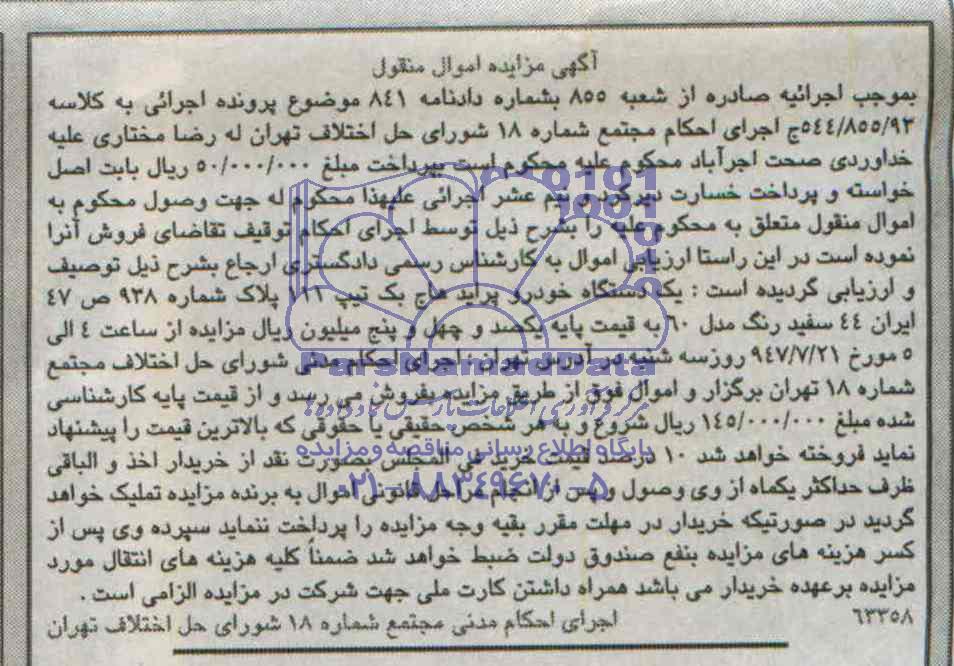 آگهی مزایده اموال منقول
بموجب اجرائیه صادره از شعبه ۸۵۵ بشماره دادنامه ۸٤۱ موضوع پرونده اجرائی به کلاسه
۵٤٤/۸۵۵/۹۳ج اجرای احکام مجتمع شماره ۱۸ شورای حل اختلاف تهران له رضا مختاری علیه
خداوردی صحت اجرآباد محکوم علیه محکوم است بپرداخت مبلغ ۵۰/۰۰۰/۰۰۰ ریال بابت اصل
خواسته و پرداخت خسارت دیرکرد و نیم عشر اجرائی علیهذا محکوم له جهت وصول محکوم به
اموال منقول متعلق به محکوم علیه را بشرح ذیل توسط اجرای احکام توقیف تقاضای فروش آنرا
نموده است در این راستا ارزیابی اموال به کارشناس رسمی دادگستری ارجاع بشرح ذیل توصیف
و ارزیابی گردیده است : یک دستگاه خودرو پراید هاچ بک تیپ ۱۱۱ پلاک شماره ۹۳۸ ص ٤۷
ایران ٤٤ سفید رنگ مدل ٦۰ به قیمت پایه یکصد و چهل و پنج میلیون ریال مزایده از ساعت ٤ الی
۵ مورخ ۹٤۷/۷/۲۱ روزسه شنبه در آدرس تهران : اجرای احکام مدنی شورای حل اختلاف مجتمع
شماره ۱۸ تهران برگزار و اموال فوق از طریق مزایده بفروش می رسد و از قیمت پایه کارشناسی
شده مبلغ ۱٤۵/۰۰۰/۰۰۰ ریال شروع و به هر شخص حقیقی یا حقوقی که بالاترین قیمت را پیشنهاد
نماید فروخته خواهد شد ۱۰ درصد قیمت خرید فی المجلس بصورت نقد از خریدار اخذ و الباقی
ظرف حداکثر یکماه از وی وصول و پس از انجام مراحل قانونی اموال به برنده مزایده تملیک خواهد
گردید در صورتیکه خریدار در مهلت مقرر بقیه وجه مزایده را پرداخت ننماید سپرده وی پس از
کسر هزینه های مزایده بنفع صندوق دولت ضبط خواهد شد ضمناً کلیه هزینه های انتقال مورد
مزایده برعهده خریدار می باشد همراه داشتن کارت ملی جهت شرکت در مزایده الزامی است .
٦۳۳۵۸ اجرای احکام مدنی مجتمع شماره ۱۸ شورای حل اختلاف تهران
ParsNamadData
پایگاه اطلاع رسانی مناقصه و مزایده
۰۲۱-۸۸۳٤۹٦۷۰-۵